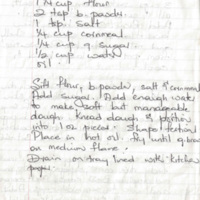 1 ¼ cup flour
2 tsp b. powder
1 tsp salt
¼ cup cornmeal
¼ cup g. sugar
½ cup water
oil
Sift flour, b. powder, salt & cornmeal
Add sugar. Add enough water
to make soft but manageable
dough. Knead dough & portion
into 1 oz pieces. Shape
Place in hot oil. Fry until g. brown
on medium flame.
Drain on tray lined with kitchen
paper.